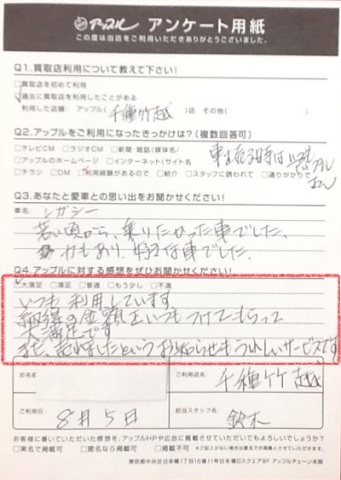 アップル アンケート用紙
この度は当店をご利用いただきありがとうございました。
Q1.買取店利用について教えて下さい!
買取店を初めて利用
過去に買取店を利用したことがある
利用した店舗: アップル( 千種竹越 )店 その他( )
Q2.アップルをご利用になったきっかけは?(複数回答可)
テレビCM ラジオCM 新聞・雑誌(媒体名/ )
アップルのホームページ インターネット(サイト名 )
チラシ DM ご利用経験があるので 紹介 スタッフに誘われて 通りがかりで
Q3.あなたと愛車との思い出をお聞かせください!
車名: レガシー
若い頃から、乗りたかった車でした。
力もあり、好きな車でした。
Q4.アップルに対する感想をぜひお聞かせください!
大満足 満足 普通 もう少し 不満
いつも利用しています。
納得の金額をいつもつけてもらって
大満足です。
また、売れましたというお知らせもうれしいサービスです
お名前
ご利用店名 千種竹越
ご利用日 8月5日
担当スタッフ名 鈴木
お客様に書いていただいた感想を、アップルHPや広告に掲載させていただいてもよろしいでしょうか?
実名で掲載可 匿名なら掲載可 掲載不可